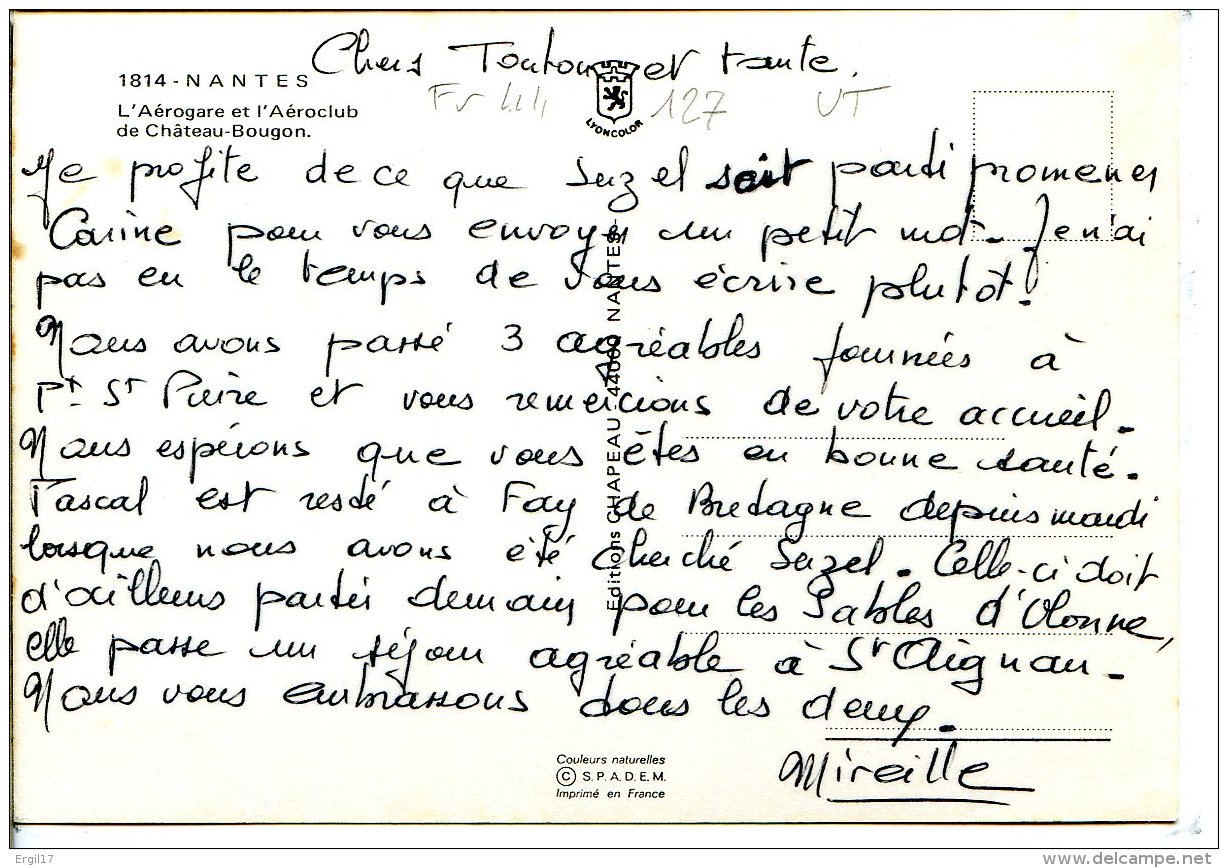 Chers Tonton et tante,
1814 - NANTES
L'Aérogare et l'Aéroclub
de Château-Bougon.
Fr 44 127 VT
LYONCOLOR
Je profite de ce que Suzel soit parti promener
Carine pour vous envoyer un petit mot. Je n'ai
pas eu le temps de vous écrire plutôt.
Nous avons passé 3 agréables journées à
Pt. St Pierre et vous remercions de votre accueil.
Nous espérons que vous êtes en bonne santé.
Pascal est resté à Fay de Bretagne depuis mardi
lorsque nous avons été cherché Suzel. Celle-ci doit
d'ailleurs partir demain pour les Sables d'Olonne,
elle passe un séjour agréable à St Aignan.
Nous vous embrassons tous les deux.
Mireille
Editions CHAPEAU - 44000 NANTES
Couleurs naturelles
© S.P.A.D.E.M.
Imprimé en France
Ergil17
delcampe.net